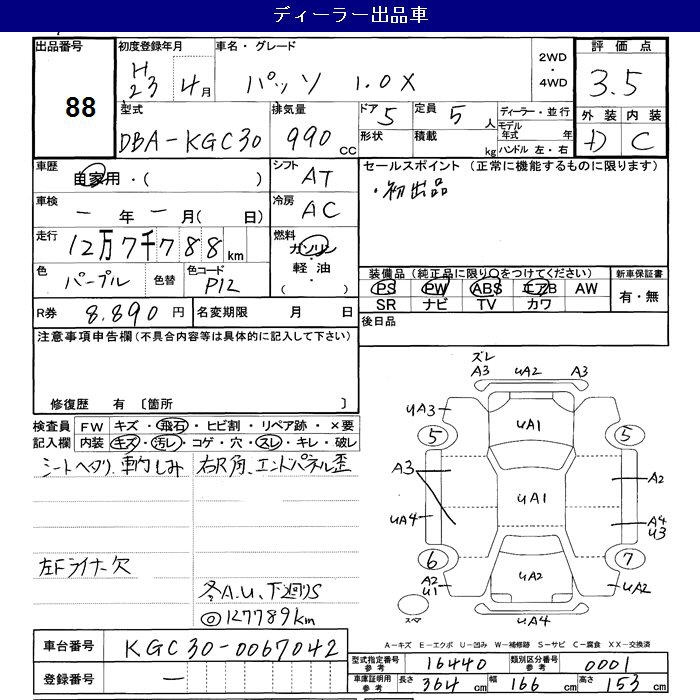 ディーラー出品車
出品番号 88
初度登録年月 H23 4月
車名・グレード パッソ 1.0X
2WD・4WD
評価点 3.5
外装 D 内装 C
型式 DBA-KGC30
排気量 990 CC
ドア 5 形状
定員 5人 積載 kg
ディーラー・並行
モデル年式 年
ハンドル 左・右
車歴 自家用・( )
シフト AT
セールスポイント (正常に機能するものに限ります)
・初出品
車検 一年一月( 日)
冷房 AC
走行 12万7千788km
燃料 ガソリン・軽油・( )
色 パープル 色替 色コード P12
装備品(純正品に限り〇をつけてください)
新車保証書
PS PW ABS エアB AW
有・無
SR ナビ TV カワ
R券 8,890円 名変期限 月 日
後日品
注意事項申告欄(不具合内容等は具体的に記入して下さい)
修復歴 有 〔箇所 〕
検査員記入欄
FW キズ・飛石・ヒビ割・リペア跡・×要
内装 キズ・汚レ・コゲ・穴・スレ・キレ・破レ
シートヘタリ、車内しみ
右R角、エンドパネル歪
左Fライナー欠
冬A.U、下廻りS
◎127789km
ズレ
A3 uA2 A3
uA3 uA1
5 5
A3 uA1 A2
uA4 A4 u3
6 7
A2 u1 uA2 uA2
スペア uA4
A-キズ E-エクボ U-凹み W-補修跡 S-サビ C-腐食 XX-交換済
車台番号 KGC30-0067042
型式指定番号 参考 16440 類別区分番号 参考 0001
登録番号 一
車庫証明用 参考 長さ 364 cm 幅 166 cm 高さ 153 cm